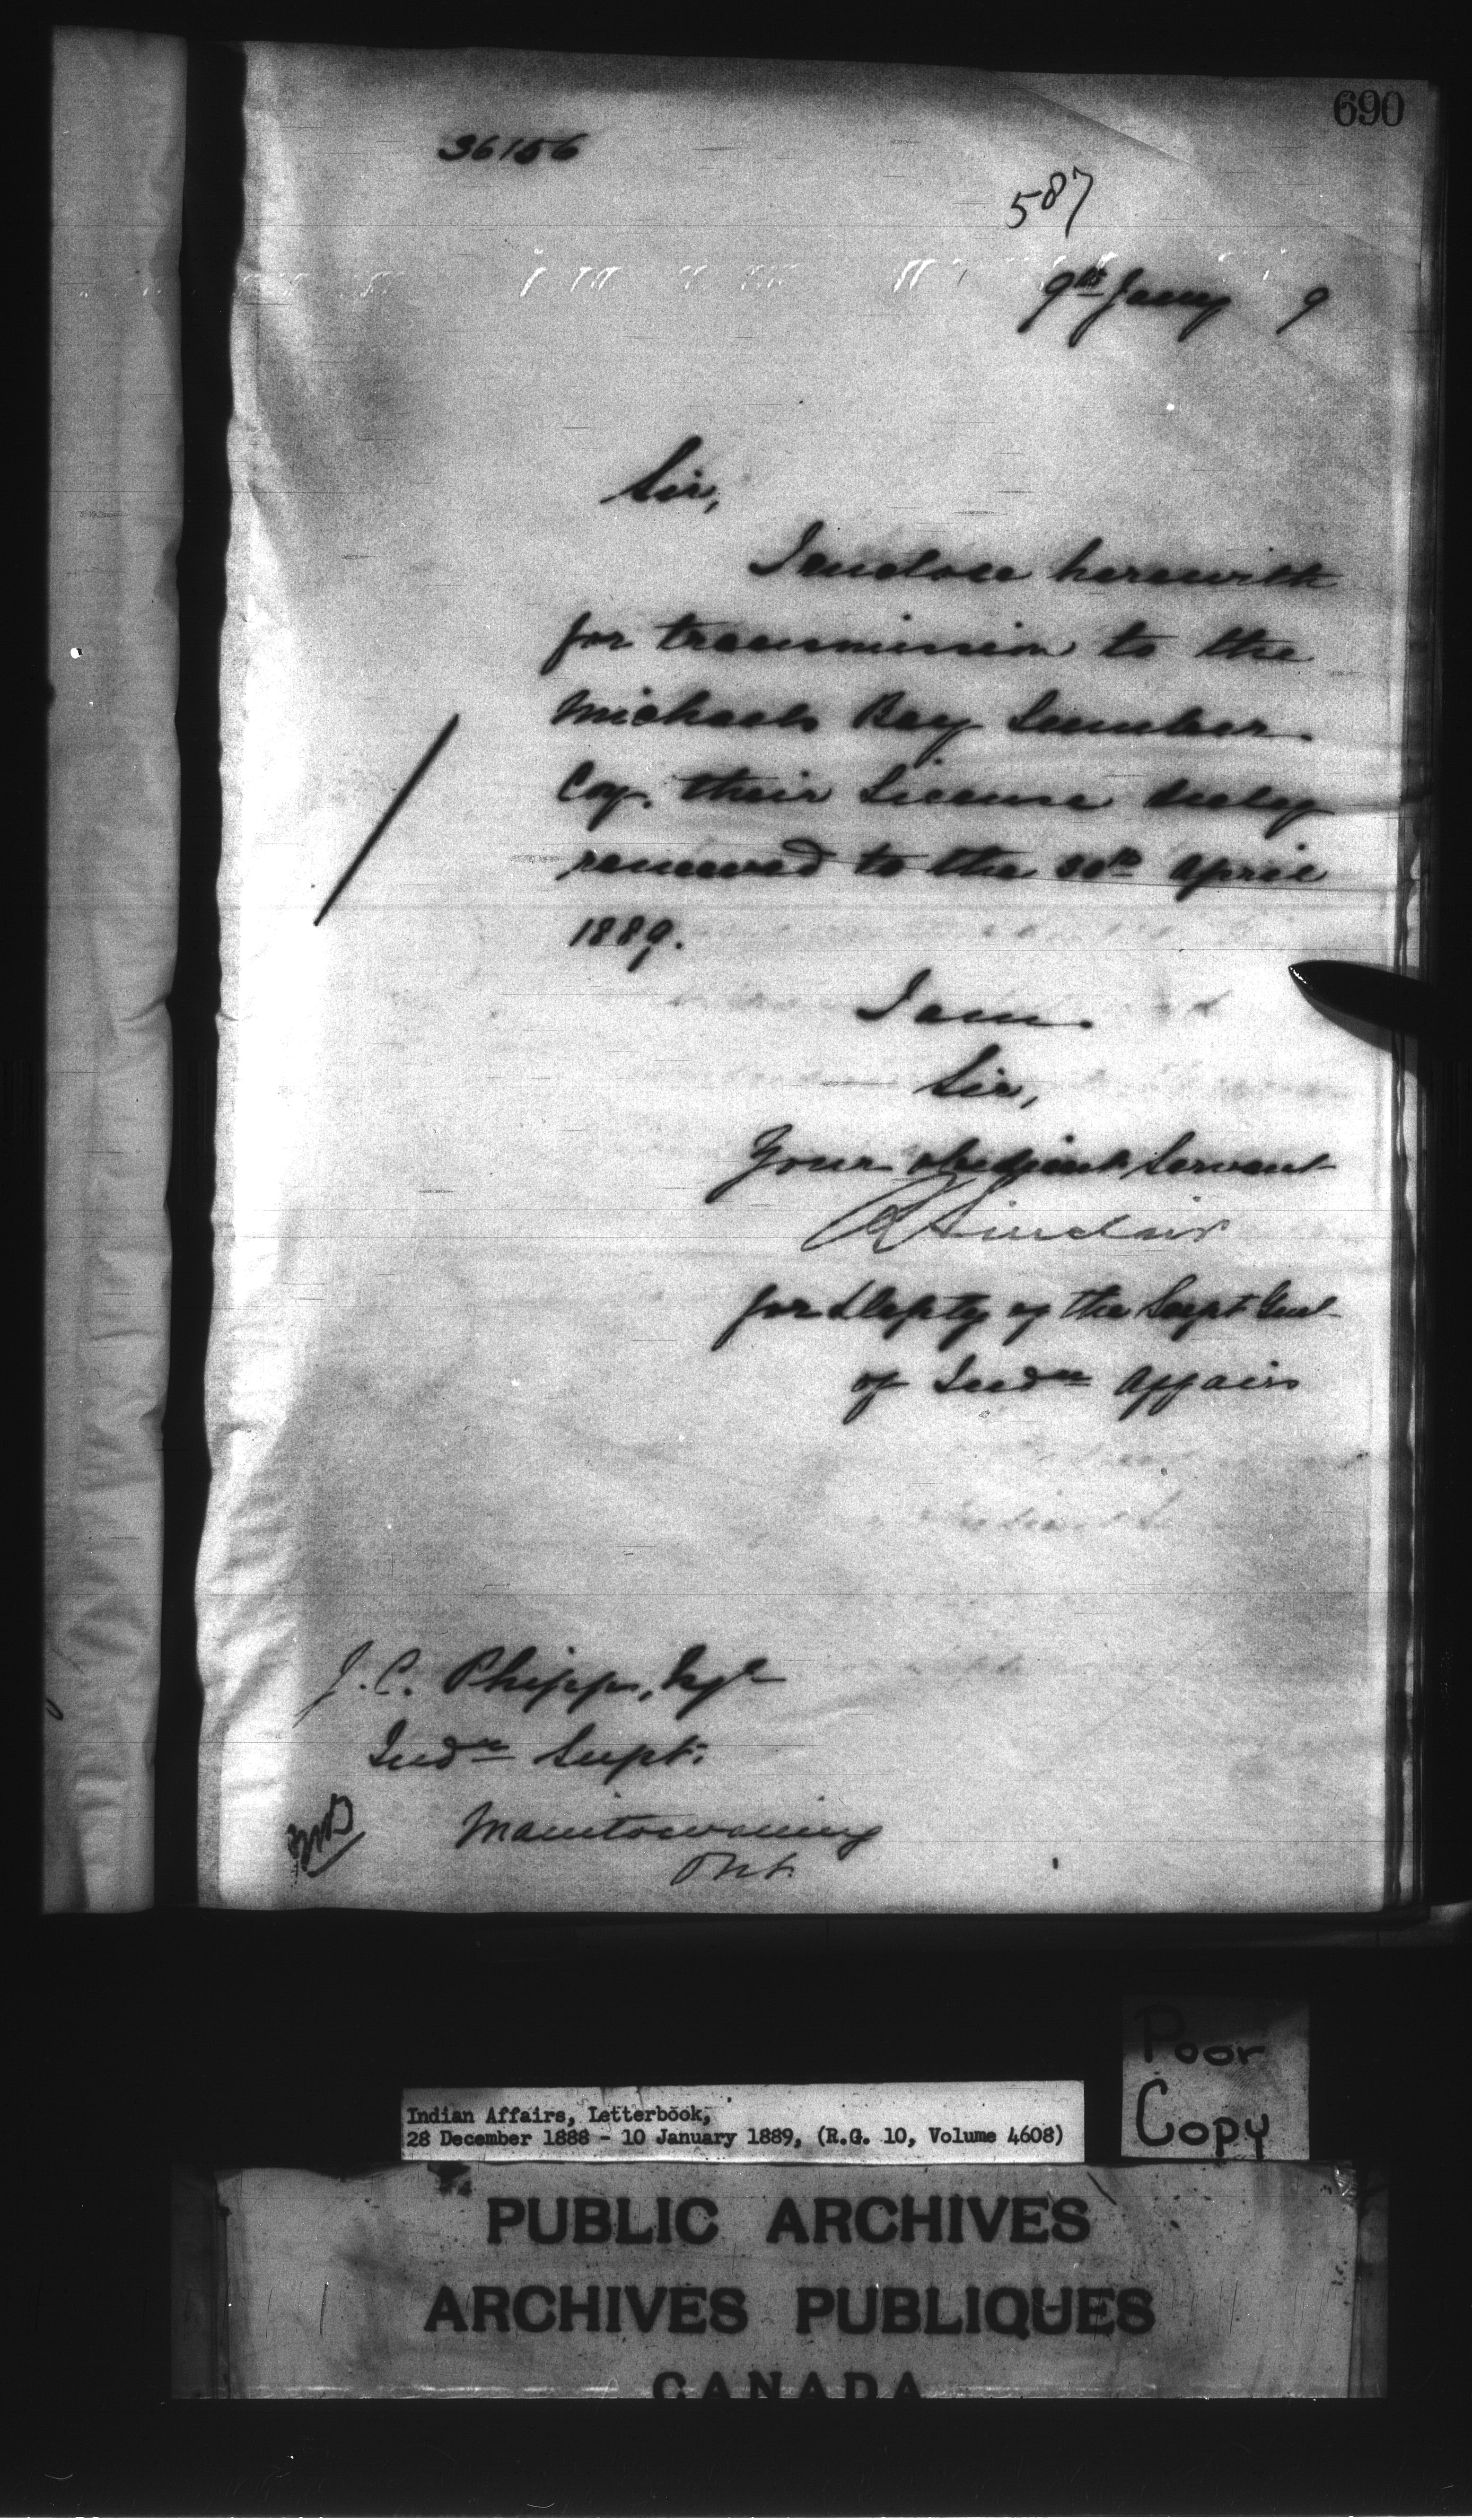 690
36156
587
9th Jany 9
Sir,
I enclose herewith
for transmission to the
Michaels Bay Lumber
Coy. their License duly
renewed to the 30th April
1889.
I am
Sir,
Your obedient Servant
R Sinclair
for Depty of the Supt Genl
of Indn Affairs
J.C. Phipps, Esqe
Indn Supt.
Manitowaning
Ont.
Poor
Copy
Indian Affairs, Letterbook,
28 December 1888 - 10 January 1889, (R.G. 10, Volume 4608)
PUBLIC ARCHIVES
ARCHIVES PUBLIQUES
CANADA